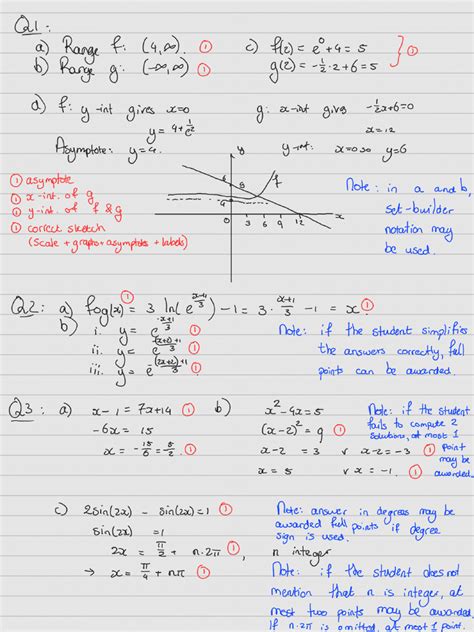 Q1:
a) Range f: (4,∞). ①
b) Range g: (-∞,∞). ①
c) f(2) = e⁰+4 = 5
g(2) = -½·2+6 = 5
①
d) f: y-int gives x=0
y = 4+1/e²
Asymptote: y=4.
g: x-int gives -½x+6=0
x=12
y-int: x=0 so y=6
① asymptote
① x-int. of g
① y-int. of f & g
① correct sketch
(scale + graphs + asymptotes + labels)
y
f
6
4
0 3 6 9 12 x
Note: in a and b,
set-builder
notation may
be used.
Q2: a) fog(x) ① = 3 ln(e^((x+1)/3)) - 1 = 3 · (x+1)/3 - 1 = x ①
b) i. y = e^((-x+1)/3) ①
ii. y = e^(((x+2)+1)/3) ①
iii. y = e^(-((2x+2)+1)/3) ①
Note: if the student simplifies
the answers correctly, full
points can be awarded.
Q3: a) x-1 = 7x+14 ①
-6x = 15
x = -15/6 = -5/2. ①
b) x²-4x=5
(x-2)² = 9 ①
x-2 = 3 v x-2 = -3 ①
x = 5 v x = -1. ①
Note: if the student
fails to compute 2
solutions, at most 1
point
may be
awarded.
c) 2sin(2x) - sin(2x) = 1 ①
sin(2x) = 1
2x = π/2 + n·2π ①, n integer
→ x = π/4 + nπ ①
Note: answer in degrees may be
awarded full points if degree
sign is used.
Note: if the student does not
mention that n is integer, at
most two points may be awarded.
If n·2π is omitted, at most 1 point.